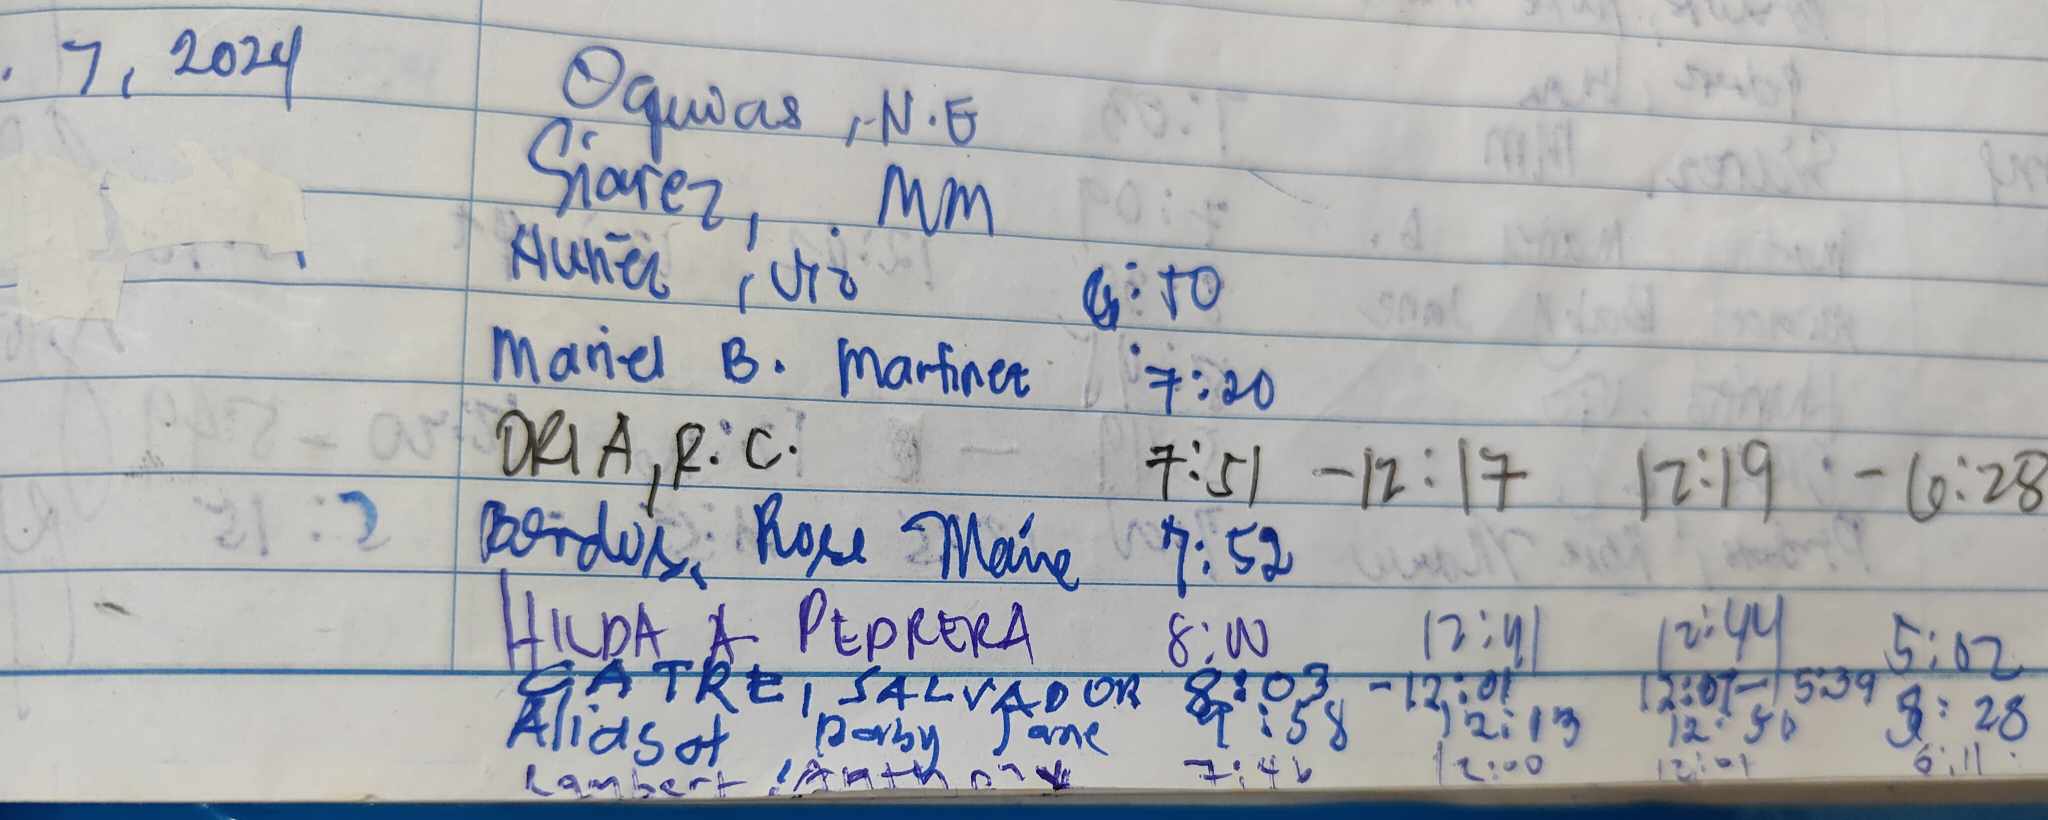 . 7, 2024 Oquias, N.E
Siarez, MM
Huñez, Vi 6:50
Mariel B. Martinez 7:20
ORIA, R.C. 7:51 - 12:17 12:19 - 6:28
Bordos, Rose Marie 7:52
HILDA A. PEDRERA 8:00 12:41 12:44 5:02
GATRE, SALVADOR 8:03 - 12:01 12:07 - 5:39
Aliasot Baby Jane 7:58 12:13 12:50 28
Lambert, Anthony 7:46 12:00 12:01 6:11